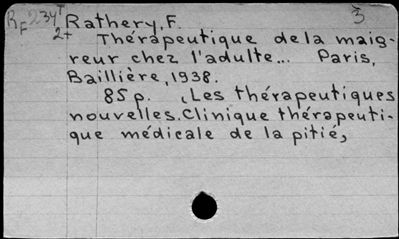 RF234T Rathery, F. 3
2+ Thérapeutique de la maig-
reur chez l'adulte... Paris,
Baillière, 1938.
85 p. (Les thérapeutiques
nouvelles. Clinique thérapeuti-
que médicale de la pitié)